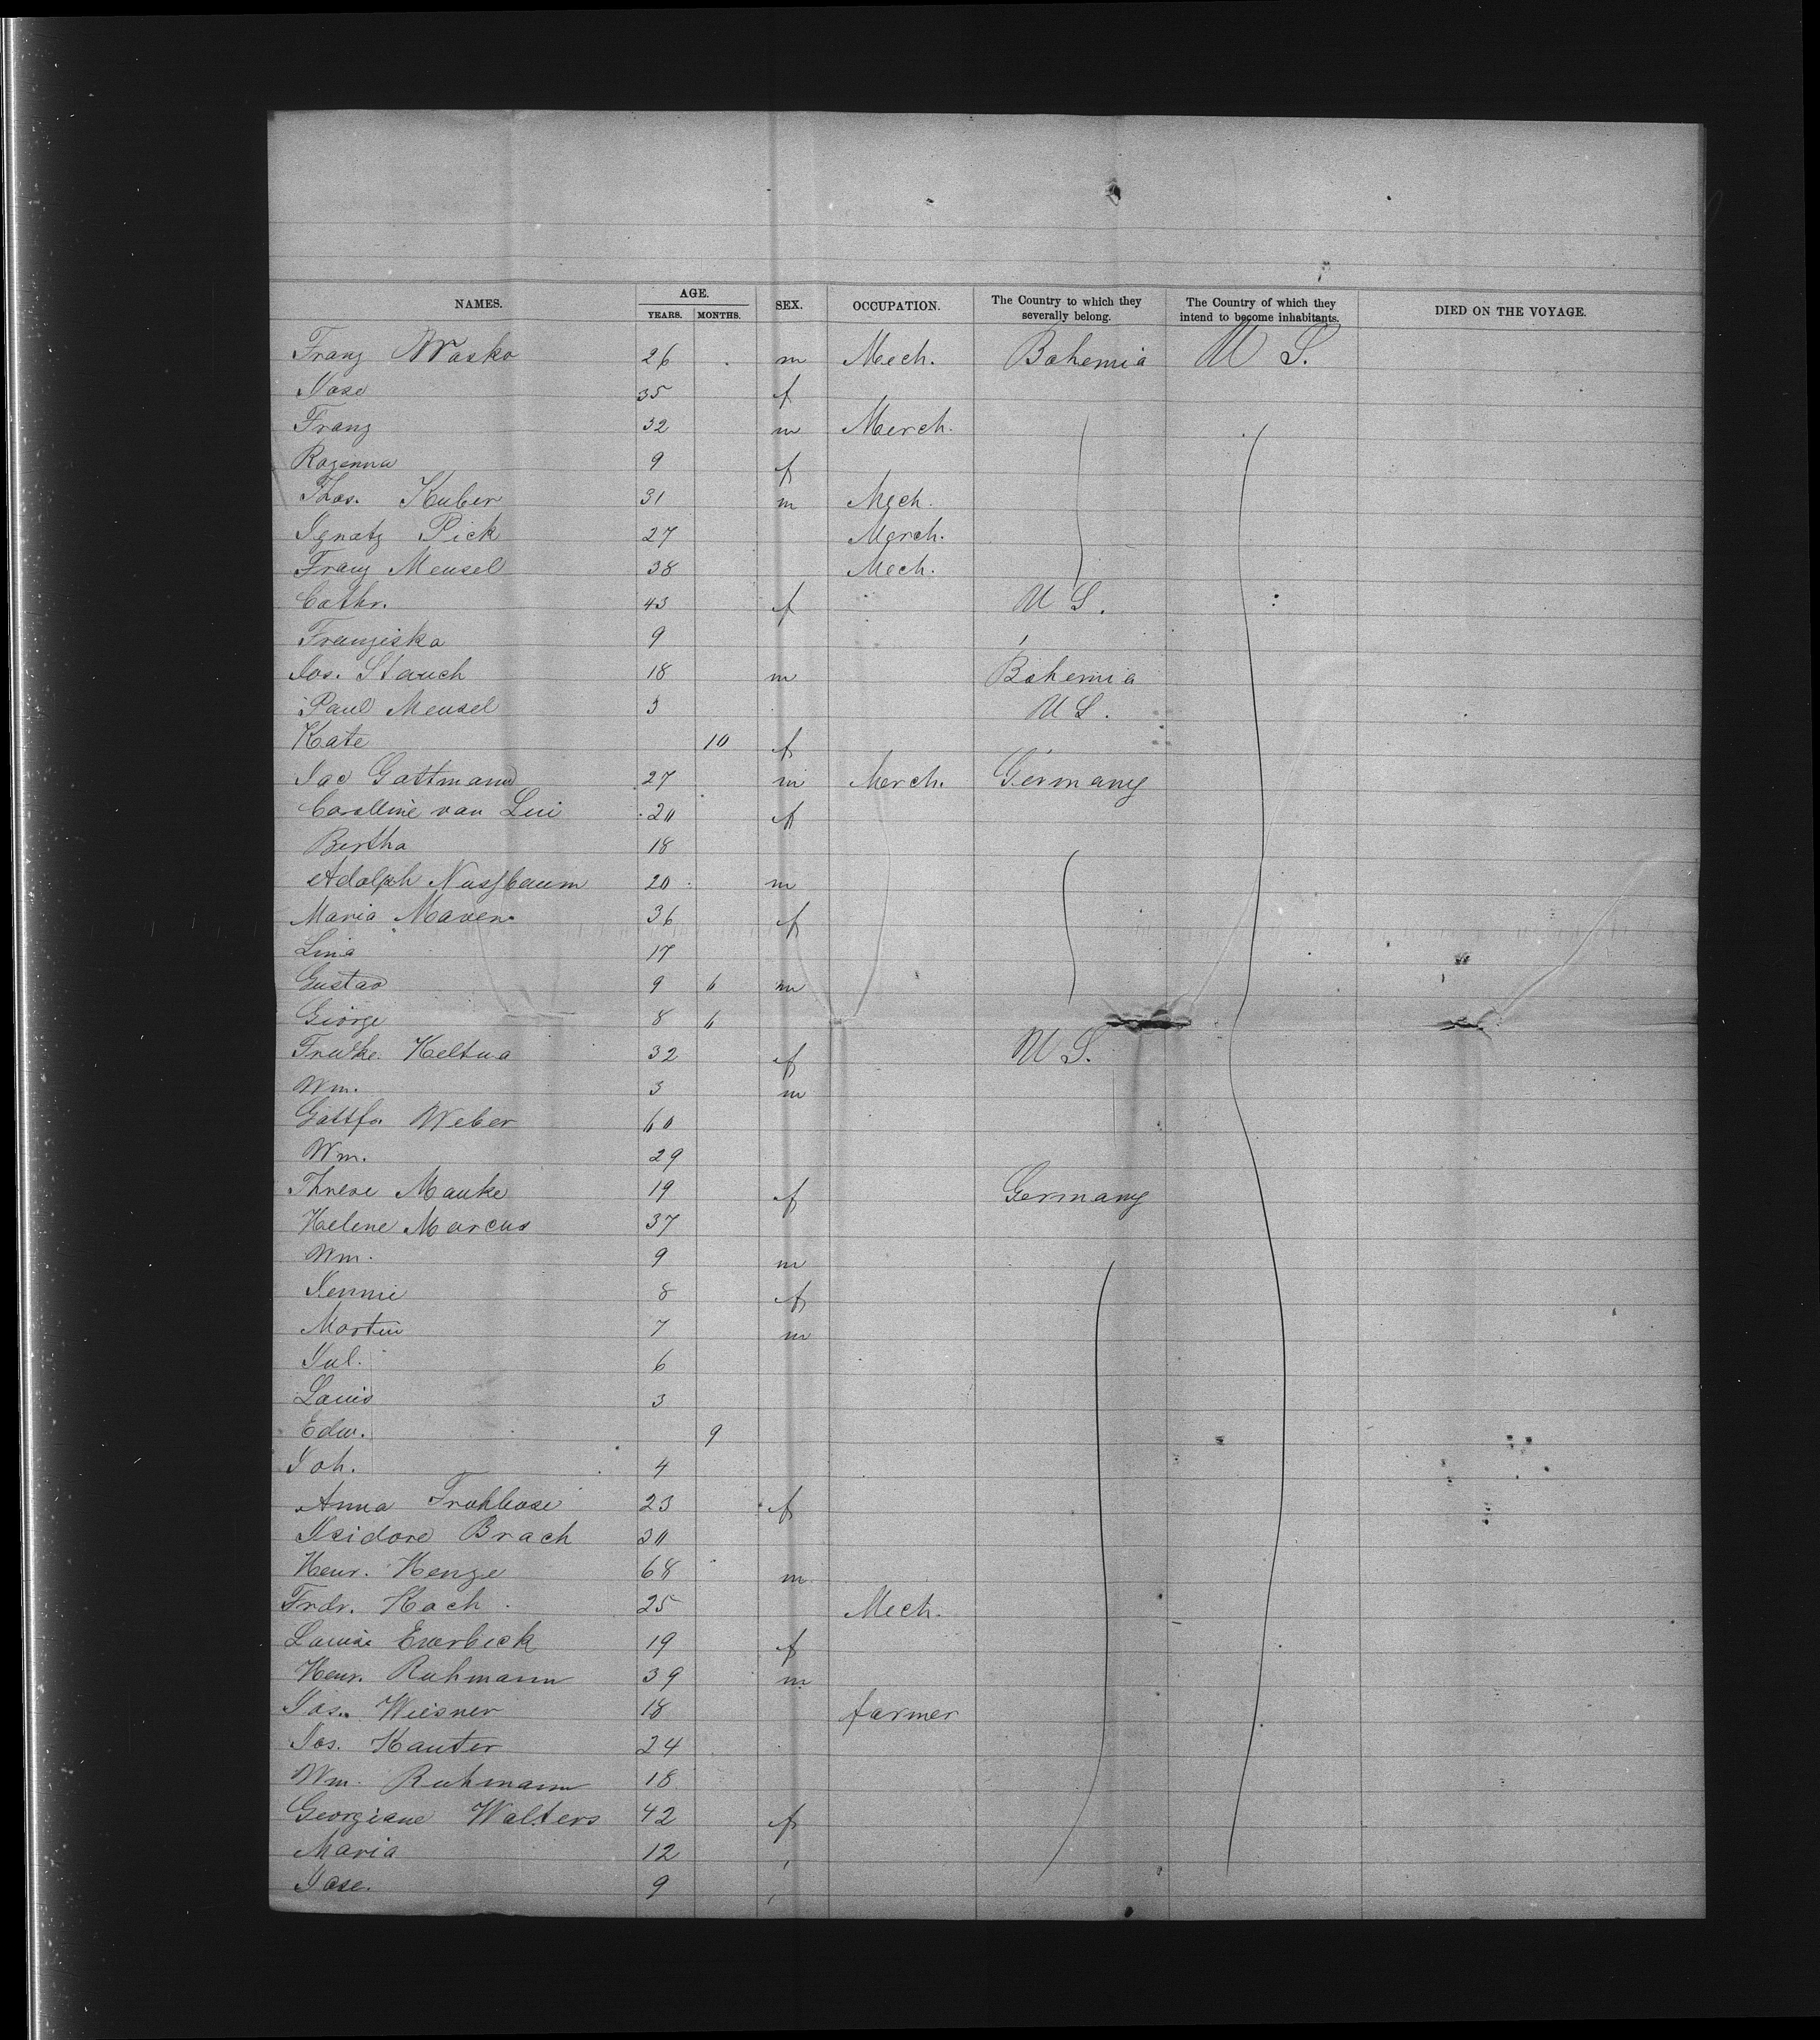 NAMES. AGE. SEX. OCCUPATION. The Country to which they severally belong. The Country of which they intend to become inhabitants. DIED ON THE VOYAGE.
YEARS. MONTHS.
Franz Wasko 26 m Mech. Bohemia U S.
35 f
Franz 32 m Merch.
Rozenna 9 f
Thos. Huber 31 m Mech.
Ignatz Pick 27 Merch.
Franz Mensel 38 Mech.
Cathr. 43 f U S.
Franziska 9
Jos. Stauch 18 m Bohemia
Paul Mensel 3 U S.
Kate 10 f
Jac Gottmann 27 m Merch. Germany
Caroline van Lui 20 f
Bertha 18
Adolph Nussbaum 20 m
Maria Maven 36 f
Lina 17
Gustav 9 6 m
George 8 6
32 f U S.
Wm. 3 m
Gottfr. Weber 60
Wm. 29
Threse Manke 19 f Germany
Helene Marcus 37
Wm. 9 m
Jennie 8 f
Martin 7 m
Jul. 6
Louis 3
Edw. 9
Joh. 4
Anna 23 f
Isidore Brach 30
Henr. Henze 68 m
Frdr. Koch 25 Mech.
Louise Everbeck 19 f
Henr. Ruhmann 39 m
Jos. Wiesner 18 farmer
Jos. Kanter 24
Wm. Ruhmann 18
Georgiane Walters 42 f
Maria 12
Jose. 9